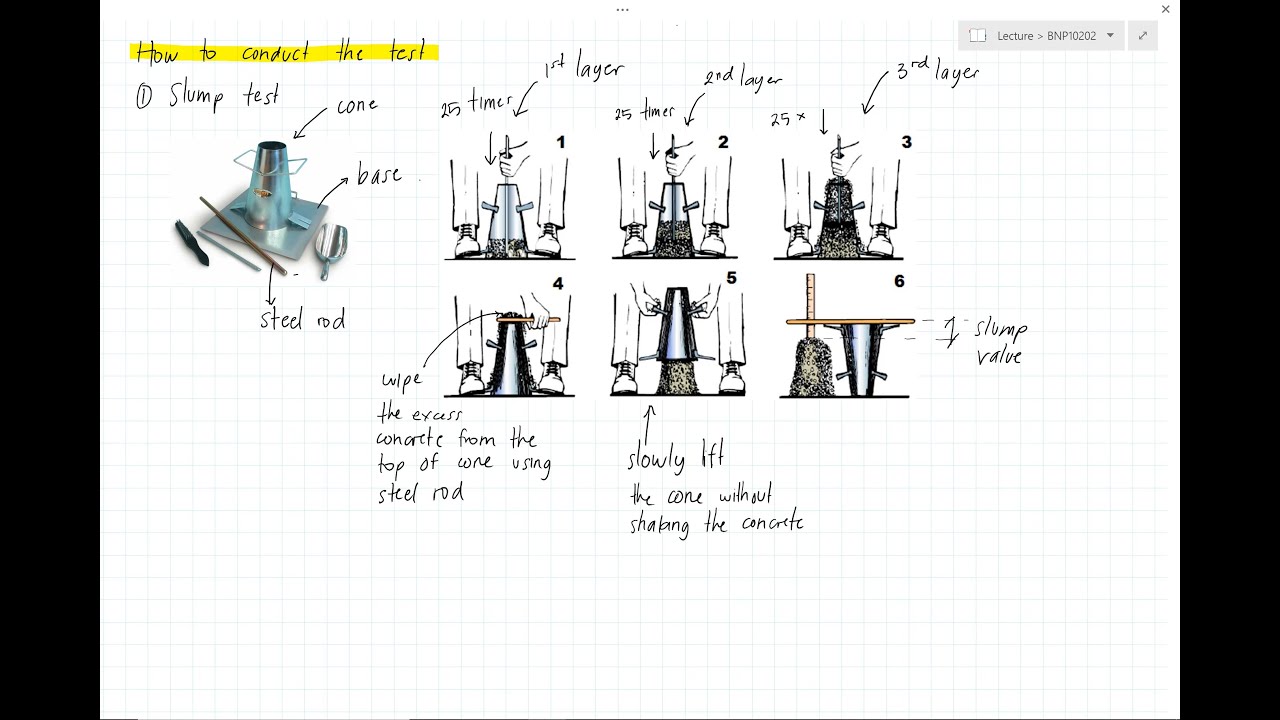 Lecture > BNP10202
How to conduct the test
① Slump test
cone
base
steel rod
1st layer
25 times
1
2nd layer
25 times
2
3rd layer
25 x
3
4
5
6
slump
value
wipe
the excess
concrete from the
top of cone using
steel rod
slowly lift
the cone without
shaking the concrete